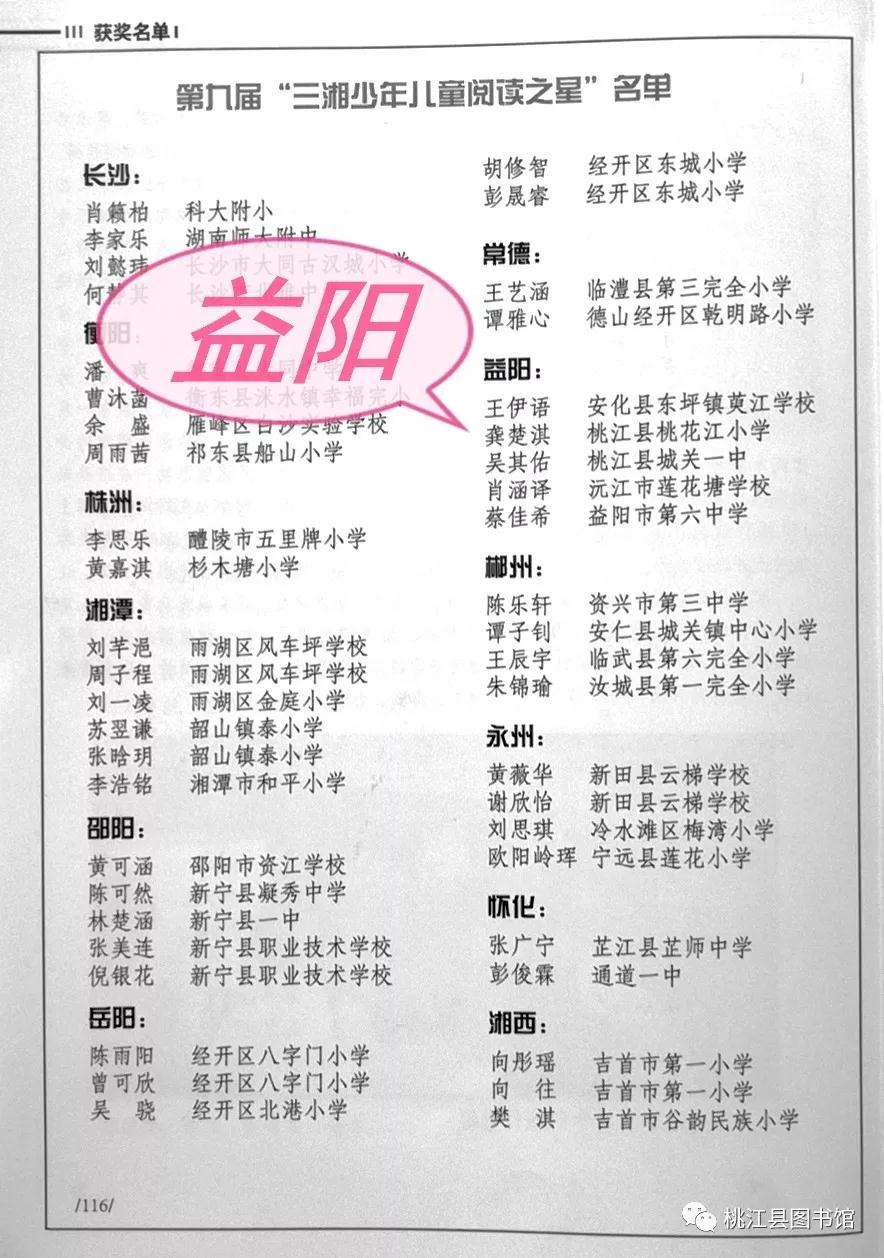 III 获奖名单 I
第九届“三湘少年儿童阅读之星”名单
长沙：
肖籁柏 科大附小
李家乐 湖南师大附中
刘懿玮 长沙市大同古汉城小学
何 其 长沙
衡阳：
潘 爽 同 中学
曹沐菡 衡东县洣水镇幸福完小
余 盛 雁峰区白沙实验学校
周雨茜 祁东县船山小学
株洲：
李思乐 醴陵市五里牌小学
黄嘉淇 杉木塘小学
湘潭：
刘芊浥 雨湖区风车坪学校
周子程 雨湖区风车坪学校
刘一凌 雨湖区金庭小学
苏翌谦 韶山镇泰小学
张晗玥 韶山镇泰小学
李浩铭 湘潭市和平小学
邵阳：
黄可涵 邵阳市资江学校
陈可然 新宁县凝秀中学
林楚涵 新宁县一中
张美连 新宁县职业技术学校
倪银花 新宁县职业技术学校
岳阳：
陈雨阳 经开区八字门小学
曾可欣 经开区八字门小学
吴 骁 经开区北港小学
胡修智 经开区东城小学
彭晟睿 经开区东城小学
常德：
王艺涵 临澧县第三完全小学
谭雅心 德山经开区乾明路小学
益阳：
王伊语 安化县东坪镇萸江学校
龚楚淇 桃江县桃花江小学
吴其佑 桃江县城关一中
肖涵译 沅江市莲花塘学校
蔡佳希 益阳市第六中学
郴州：
陈乐轩 资兴市第三中学
谭子钊 安仁县城关镇中心小学
王辰宇 临武县第六完全小学
朱锦瑜 汝城县第一完全小学
永州：
黄薇华 新田县云梯学校
谢欣怡 新田县云梯学校
刘思琪 冷水滩区梅湾小学
欧阳岭珲 宁远县莲花小学
怀化：
张广宁 芷江县芷师中学
彭俊霖 通道一中
湘西：
向彤瑶 吉首市第一小学
向 往 吉首市第一小学
樊 淇 吉首市谷韵民族小学
益阳
/116/
桃江县图书馆